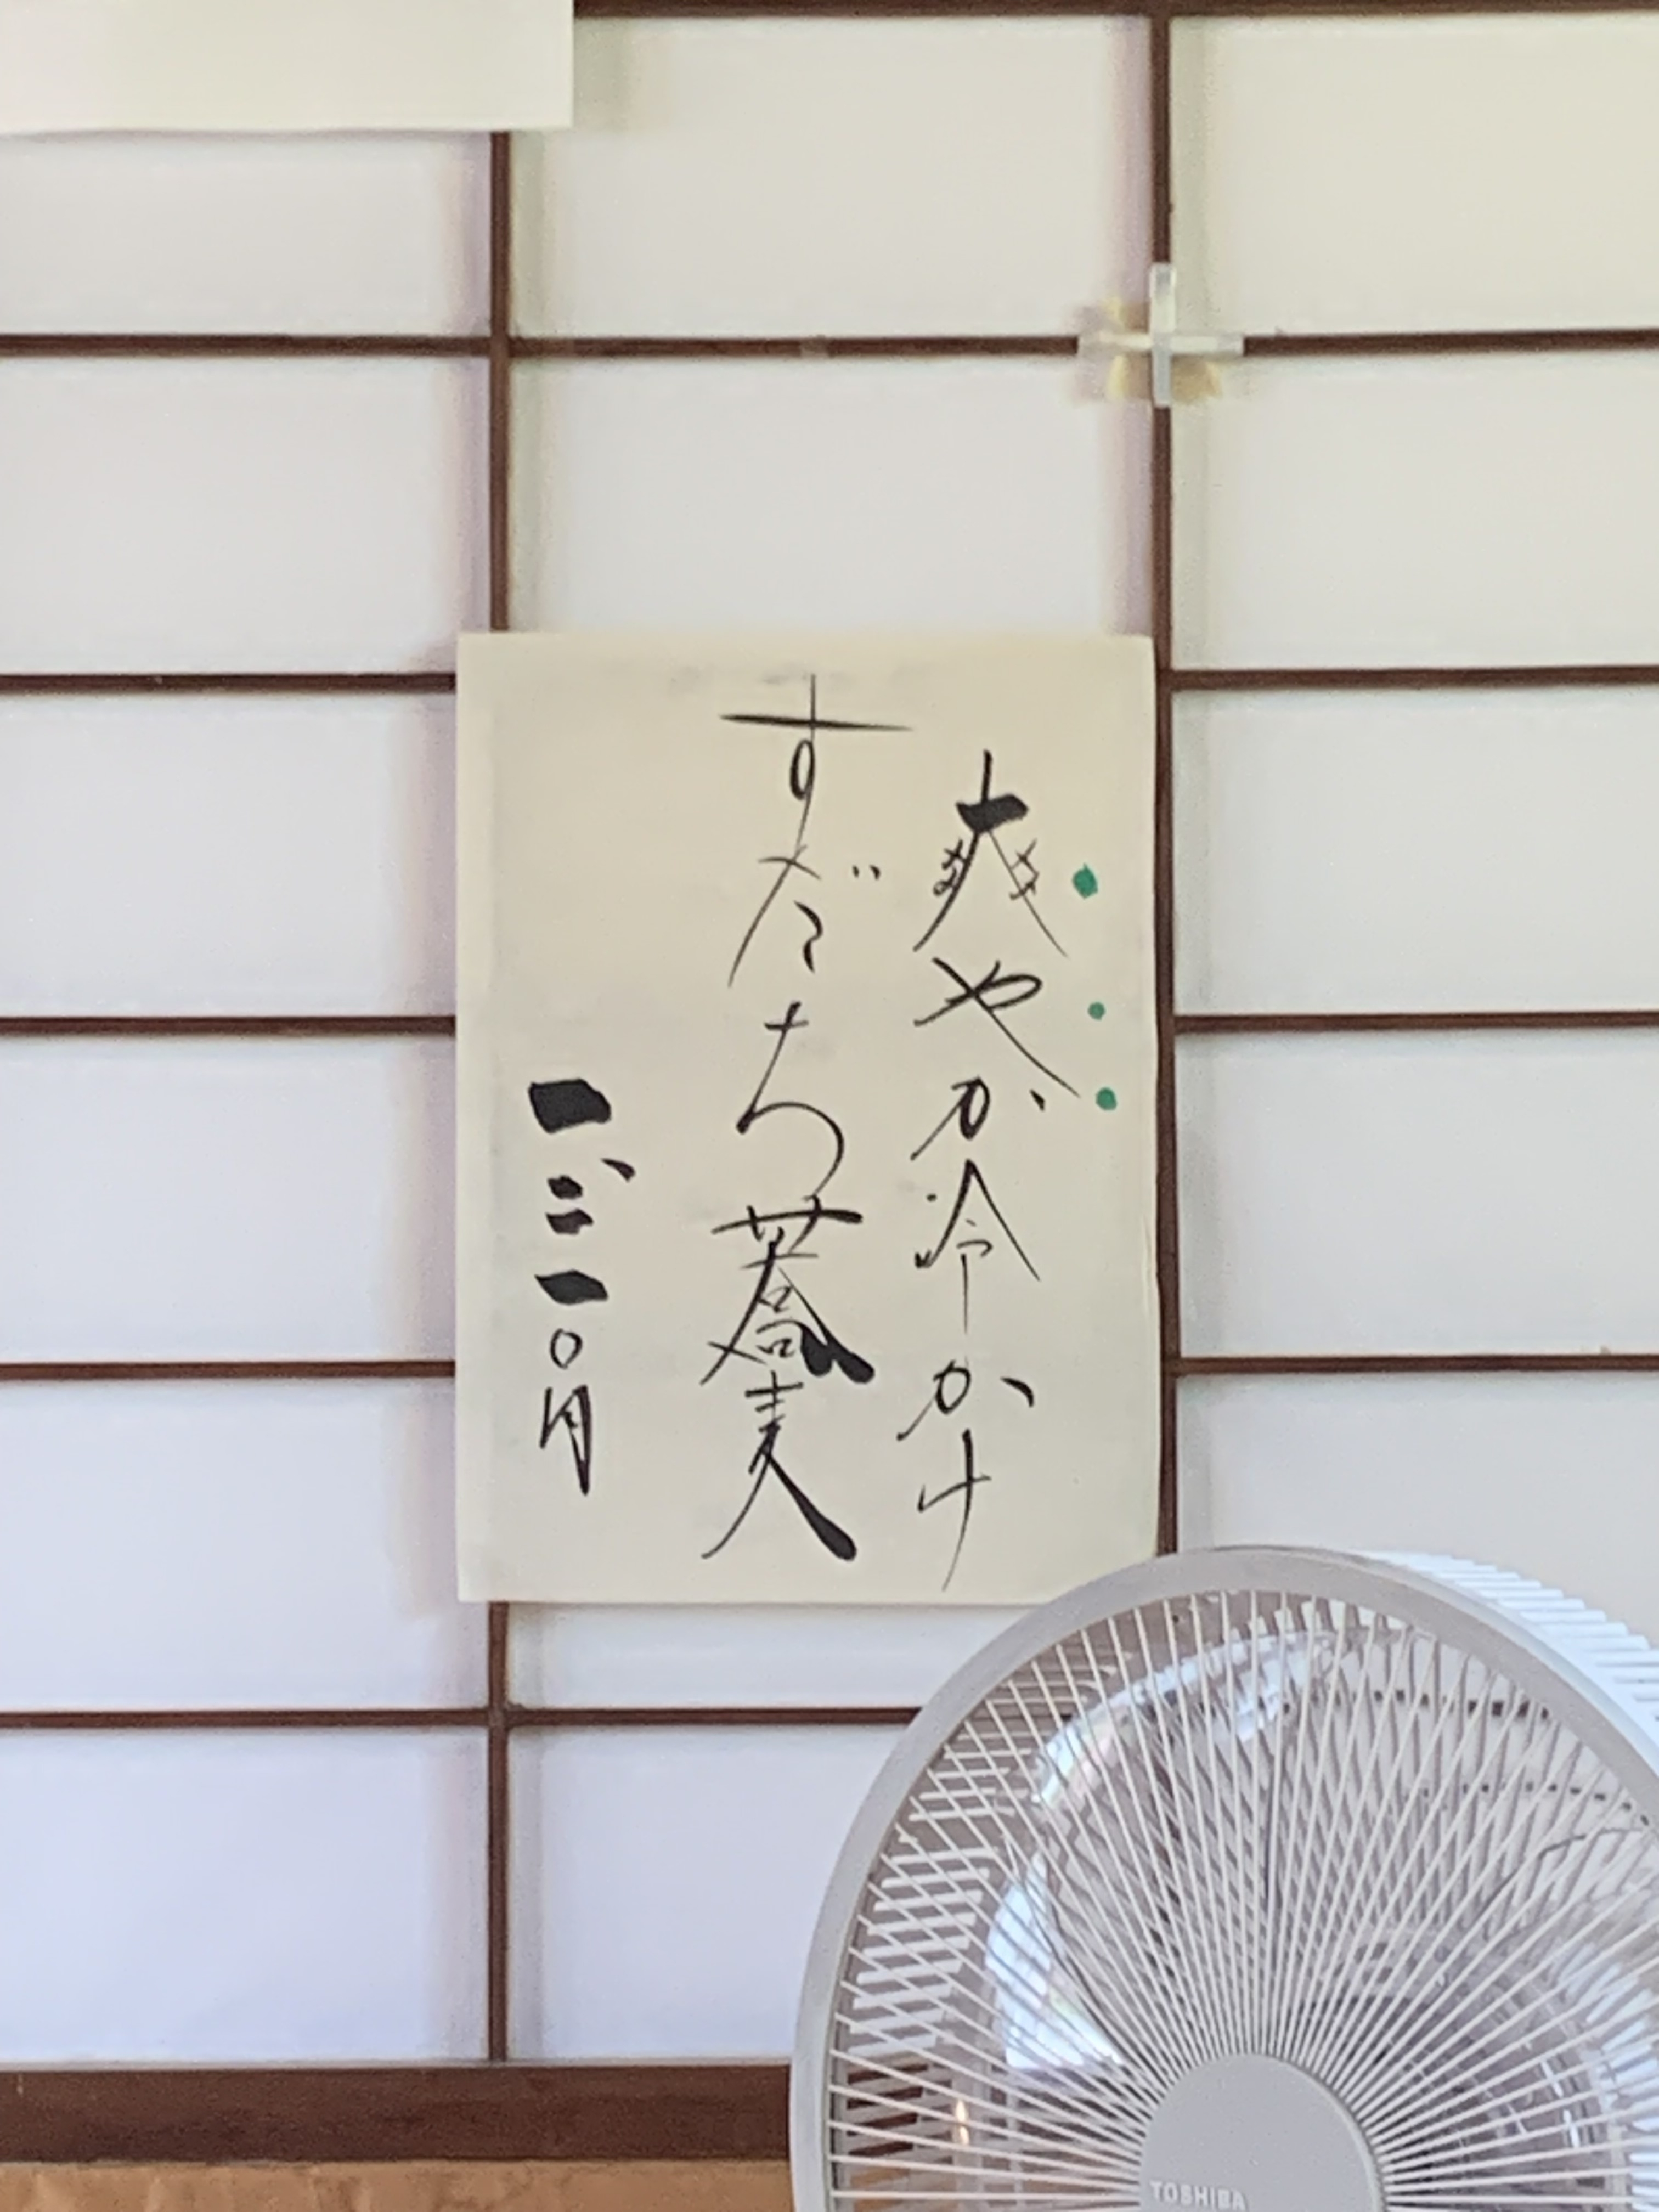 爽やか冷かけ
すだち蕎麦
一、二一〇円
TOSHIBA